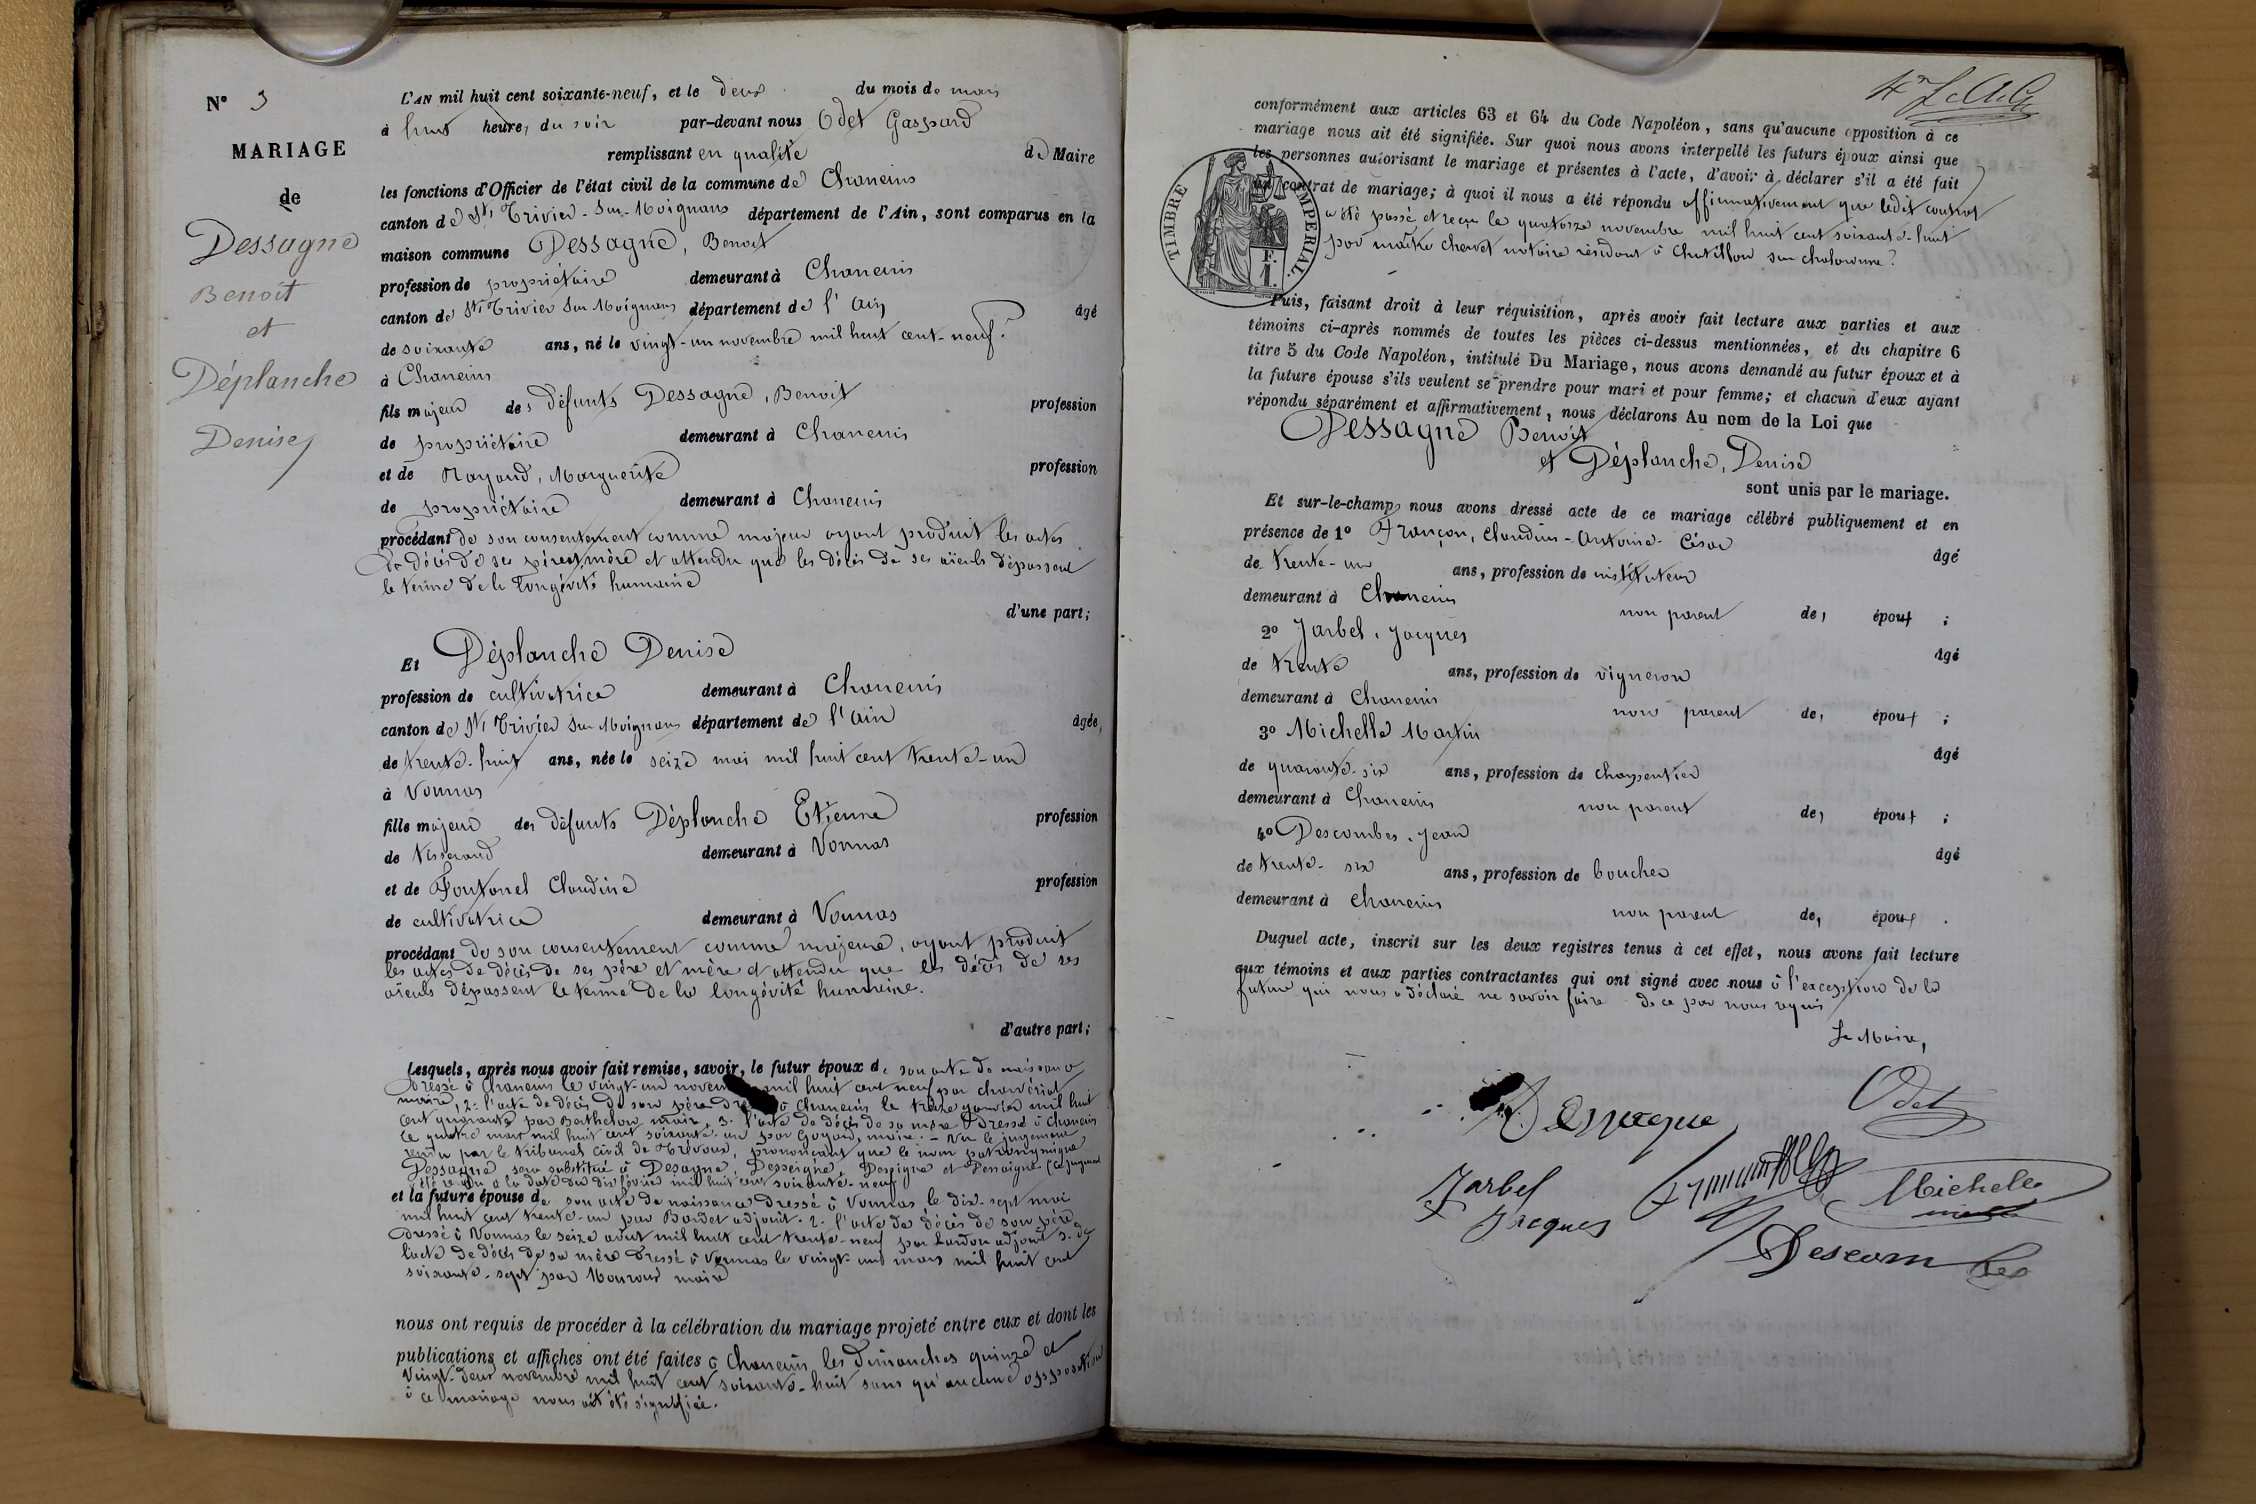 N° 3
MARIAGE
de
Dessagne
Benoit
et
Déplanche
Denise
L'AN mil huit cent soixante-neuf, et le deux du mois de mars
à huit heures du soir par-devant nous Odet Gaspard
remplissant en qualité de Maire
les fonctions d'Officier de l'état civil de la commune de Chaneins
canton de St Trivier-Sur-Moignans département de l'Ain, sont comparus en la
maison commune Dessagne, Benoit
profession de propriétaire demeurant à Chaneins
canton de St Trivier Sur Moignans département de l'Ain âgé
de soixante ans, né le vingt-un novembre mil huit cent-neuf.
à Chaneins
fils majeur des défunts Dessagne, Benoit profession
de propriétaire demeurant à Chaneins
et de Rayand, Marguerite profession
de propriétaire demeurant à Chaneins
procédant de son consentement comme majeur ayant produit les actes
de décès de ses père et mère et attendu que les décès de ses aïeuls dépassent
le terme de la longévité humaine
d'une part;
Et Déplanche Denise
profession de cultivatrice demeurant à Chaneins
canton de St Trivier Sur Moignans département de l'Ain âgée,
de trente-huit ans, née le seize mai mil huit cent trente-un
à Vonnas
fille majeure des défunts Déplanche Etienne profession
de tisserand demeurant à Vonnas
et de Fontanel Claudine profession
de cultivatrice demeurant à Vonnas
procédant de son consentement comme majeure, ayant produit
les actes de décès de ses père et mère et attendu que les décès de ses
aïeuls dépassent le terme de la longévité humaine.
d'autre part;
Lesquels, après nous avoir fait remise, savoir, le futur époux de son acte de naissance
dressé à Chaneins le vingt-un mil huit cent neuf par
maire, 2: l'acte de décès de son père à Chaneins le treize janvier mil huit
cent quarante par Barthelon maire, 3. l'acte de décès de sa mère dressé à Chaneins
le quatre mars mil huit cent soixante-un par Goyard, maire. - Vu le jugement
rendu par le tribunal civil de Trévoux, prononçant que le nom patronymique
Dessagne sera substitué à Desagne, Desseigne, Desseigne et
a été rendu à la date du dix février mil huit cent soixante-neuf
et la future épouse de son acte de naissance dressé à Vonnas le dix-sept mai
mil huit cent trente-un par Bordet adjoint. 2: l'acte de décès de son père
dressé à Vonnas le seize août mil huit cent trente-neuf par adjoint 3. de
l'acte de décès de sa mère dressé à Vonnas le vingt-un mars mil huit cent
soixante-sept par maire
nous ont requis de procéder à la célébration du mariage projeté entre eux et dont les
publications et affiches ont été faites à Chaneins les dimanches quinze et
vingt-deux novembre mil huit cent soixante-huit sans qu'aucune opposition
à ce mariage nous ait été signifiée.
TIMBRE IMPERIAL.
F.
1.
conformément aux articles 63 et 64 du Code Napoléon, sans qu'aucune opposition à ce
mariage nous ait été signifiée. Sur quoi nous avons interpellé les futurs époux ainsi que
les personnes autorisant le mariage et présentes à l'acte, d'avoir à déclarer s'il a été fait
un contrat de mariage; à quoi il nous a été répondu affirmativement que ledit contrat
a été passé et reçu le quatorze novembre mil huit cent soixante-huit
par maître notaire résidant à Chatillon sur chalaronne.
Puis, faisant droit à leur réquisition, après avoir fait lecture aux parties et aux
témoins ci-après nommés de toutes les pièces ci-dessus mentionnées, et du chapitre 6
titre 5 du Code Napoléon, intitulé Du Mariage, nous avons demandé au futur époux et à
la future épouse s'ils veulent se prendre pour mari et pour femme; et chacun d'eux ayant
répondu séparément et affirmativement, nous déclarons Au nom de la Loi que
Dessagne Benoit
et Déplanche, Denise
sont unis par le mariage.
Et sur-le-champ nous avons dressé acte de ce mariage célébré publiquement et en
présence de 1° Françon, Claudius-Antoine-César
âgé
de trente-un ans, profession de instituteur
demeurant à Chaneins
non parent de, époux ;
2° Jarbel, Jacques
âgé
de trente ans, profession de vigneron
demeurant à Chaneins
non parent de, époux ;
3° Michelle Martin
âgé
de quarante-six ans, profession de charpentier
demeurant à Chaneins
non parent de, époux ;
4° Descombes, Jean
âgé
de trente-six ans, profession de boucher
demeurant à Chaneins
non parent de, époux .
Duquel acte, inscrit sur les deux registres tenus à cet effet, nous avons fait lecture
aux témoins et aux parties contractantes qui ont signé avec nous à l'exception de la
future qui nous a déclaré ne savoir faire de ce par nous requis
Le Maire,
Dessagne
Odet
Jarbel
Jacques
Michelle
Descombes